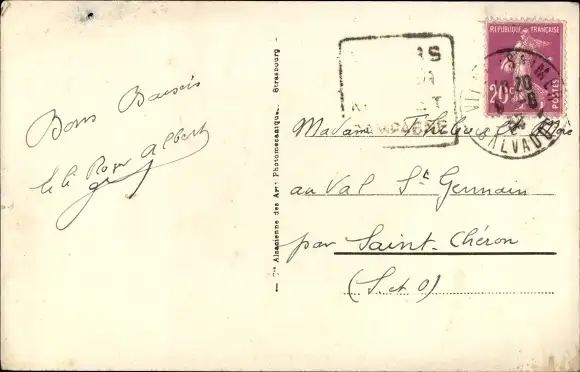 Bons Baisers
Lili Roger Albert
Cie Alsacienne des Arts Photomécaniques, Strasbourg
RÉPUBLIQUE FRANÇAISE
20c
POSTES
CALVADOS
Madame Thibault Mère
au Val St Germain
par Saint-Chéron
(S et O)